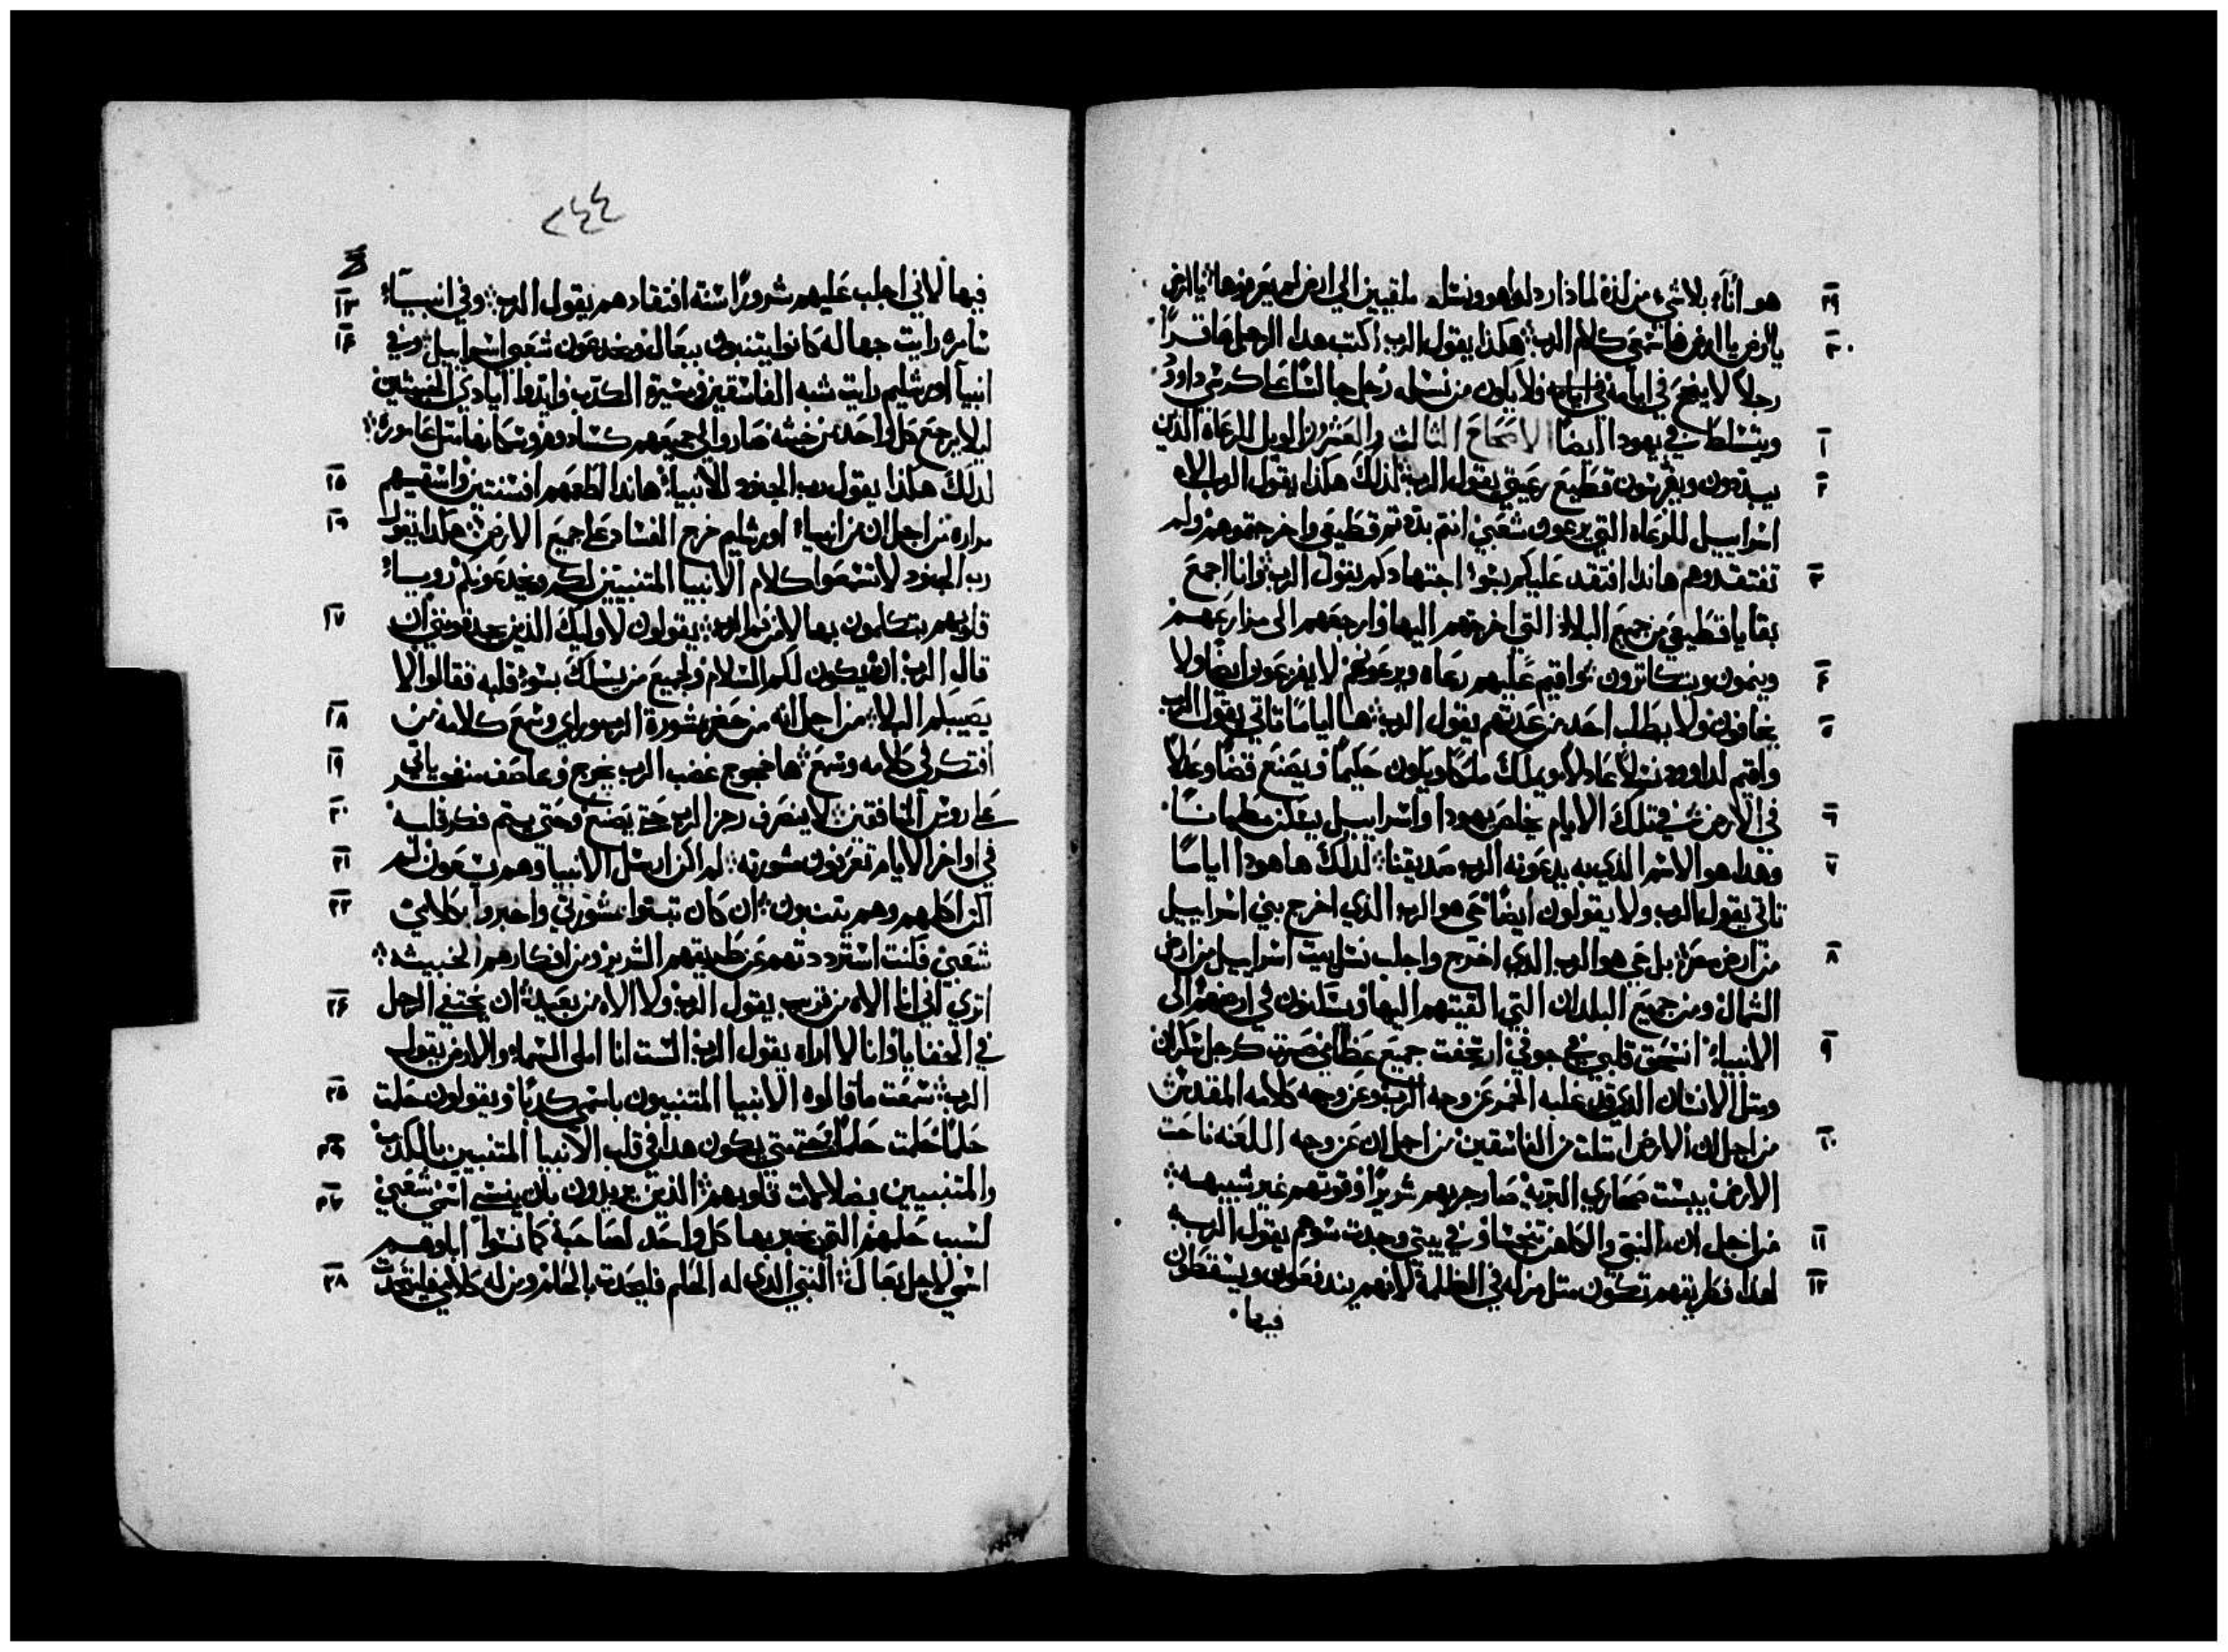 هو اناء بلا شي من لذة لماذا ردلوا هو ونسله ملقيين الي ارض لم يعرفوها يا ارض
٢٩
يا ارض يا ارض فاسمعي كلام الرب هكذا يقول الرب اكتب هدا الرجل عاقرًا
٣٠
رجلا لا يفع في ايامه ولا يكون من نسله رجل جالسًا علي كرسي داوود
ويتسلط في يهودا ايضا الاصحاح الثالث والعشرون الويل للرعاه الدين
١
يبددون ويفرقون قطيع رعيتي يقول الرب لدلك هكدا يقول الرب الاه
٢
اسراييل للرعاه التي يرعون شعبي انتم بددتم قطيعي واخرجتموهم ولم
تفتقدوهم هاندا افتقد عليكم بسوء اجتهادكم يقول الرب وانا اجمع
٣
بقايا قطيعي من جميع البلاد التي اخرجتهم اليها وارجعهم الى مزارعهم
وينمون ويتكاترون واقيم عليهم رعاه ويرعونهم لا يفزعون ايضا ولا
٤
يخافون ولا يطلب احد من عددهم يقول الرب ها اياما تاتي يقول الرب
٥
واقيم لداوود نسلا عادلا ويملك ملكا ويكون حكيمًا ويصنع قضا وعدلا
في الارض في تلك الايام يخلص يهودا واسراييل يسكن مطمانا
٦
وهدا هو الاسم الدي به يدعونه الرب صديقنا لدلك ها هودا اياما
٧
تاتي يقول الرب ولا يقولون ايضا حي هو الرب الدي اخرج بني اسراييل
من ارض مصر بل حي هو الرب الدي اخرج واجلب نسل بيت اسراييل من ارض
٨
الشمال ومن جميع البلدان التي القيتهم اليها ويسكنون في ارضهم الى
الانبياء انسحق قلبي في جوفي ارتجفت جميع عظامي صرت كرجل سكران
٩
ومتل الانسان الدي علبه الخمر عن وجه الرب وعن وجه كلامه المقدس
من اجل ان الارض امتلت من الفاسقين من اجل ان عن وجه اللعنه ناحت
١٠
الارض يبست صحاري البرية صار جريهم شريرًا وقوتهم غير شبيهه
من اجل ان النبي والكاهن تنجسا وفي بيتي وجدت سوهم يقول الرب
١١
لهدا طريقهم تكون متل مزله في الظلمة لانهم يندفعون ويسقطون
١٢
فيها
٢٤٤
فيها لاني اجلب عليهم شرورًا سنة افتقادهم يقول الرب وفي انبياء
١٣
سامره رايت جهاله كانوا يتنبون ببعال ويخدعون شعبي اسراييل وفي
١٤
انبيا اورشليم رايت شبه الفاسقين وسيرة الكدب وايدوا ايادي الخبيثين
ليلا يرجع كل واحد من خبثه صاروا لي جميعهم كسادوم وسكانها متل عامورة
لدلك هكدا يقول رب الجنود للانبياء هاندا اطعمهم افسنتين واسقيهم
١٥
مراره من اجل ان من انبياء اورشليم خرج الفساد علي جميع الارض هكدا يقول
١٦
رب الجنود لا تسمعوا كلام الانبيا المتنبيين لكم ويخدعونكم رويا
قلوبهم يتكلمون بها لا من فم الرب يقولون لاوليك الذين يجدفونني ان
١٧
قال الرب انه يكون لكم السلام ولجميع من يسلك بسوء قلبه فقالوا لا
يصيبكم البلاء من اجل انه من حضر مشورة الرب وراي وسمع كلامه من
١٨
افتكر في كلامه وسمع ها خروج غضب الرب يخرج وعاصف ياتي
١٩
على روس المنافقين لا ينصرف رجز الرب حتى يصنع وحتي يتم فكر قلبه
٢٠
في اواخر الايام تعرفون مشورته لم اكن ارسل الانبيا وهم يسعون لم
٢١
اكن اكلمهم وهم يتنبون ان كان تبتوا بمشورتي واخبروا بكلامي
٢٢
شعبي فكنت استرددتهم عن طريقهم الشرير ومن افكارهم الخبيثه
اتري اني انا الاه من قرب يقول الرب ولا الاه من بعيد ان يختفي الرجل
٢٤
في الخفايا وانا لا اراه يقول الرب الست انا املي السماء والارض يقول
الرب سمعت ما قالوه الانبيا المتنبيون باسمي كدبًا ويقولون حلمت
٢٥
حلمًا حلمت حلمًا حتى متي يكون هدا في قلب الانبيا المتنبيين بالكدب
٢٦
والمتنبيين بضلالات قلوبهم الذين يريدون بان ينسي اسمي شعبي
٢٧
لسبب حلمهم التي يخبر بها كل واحد لصاحبه كما نسوا اباوهم
اسمي لاجل بعال النبي الدي له الحلم فليحدث بالحلم ومن له كلامي فليتحدث
٢٨